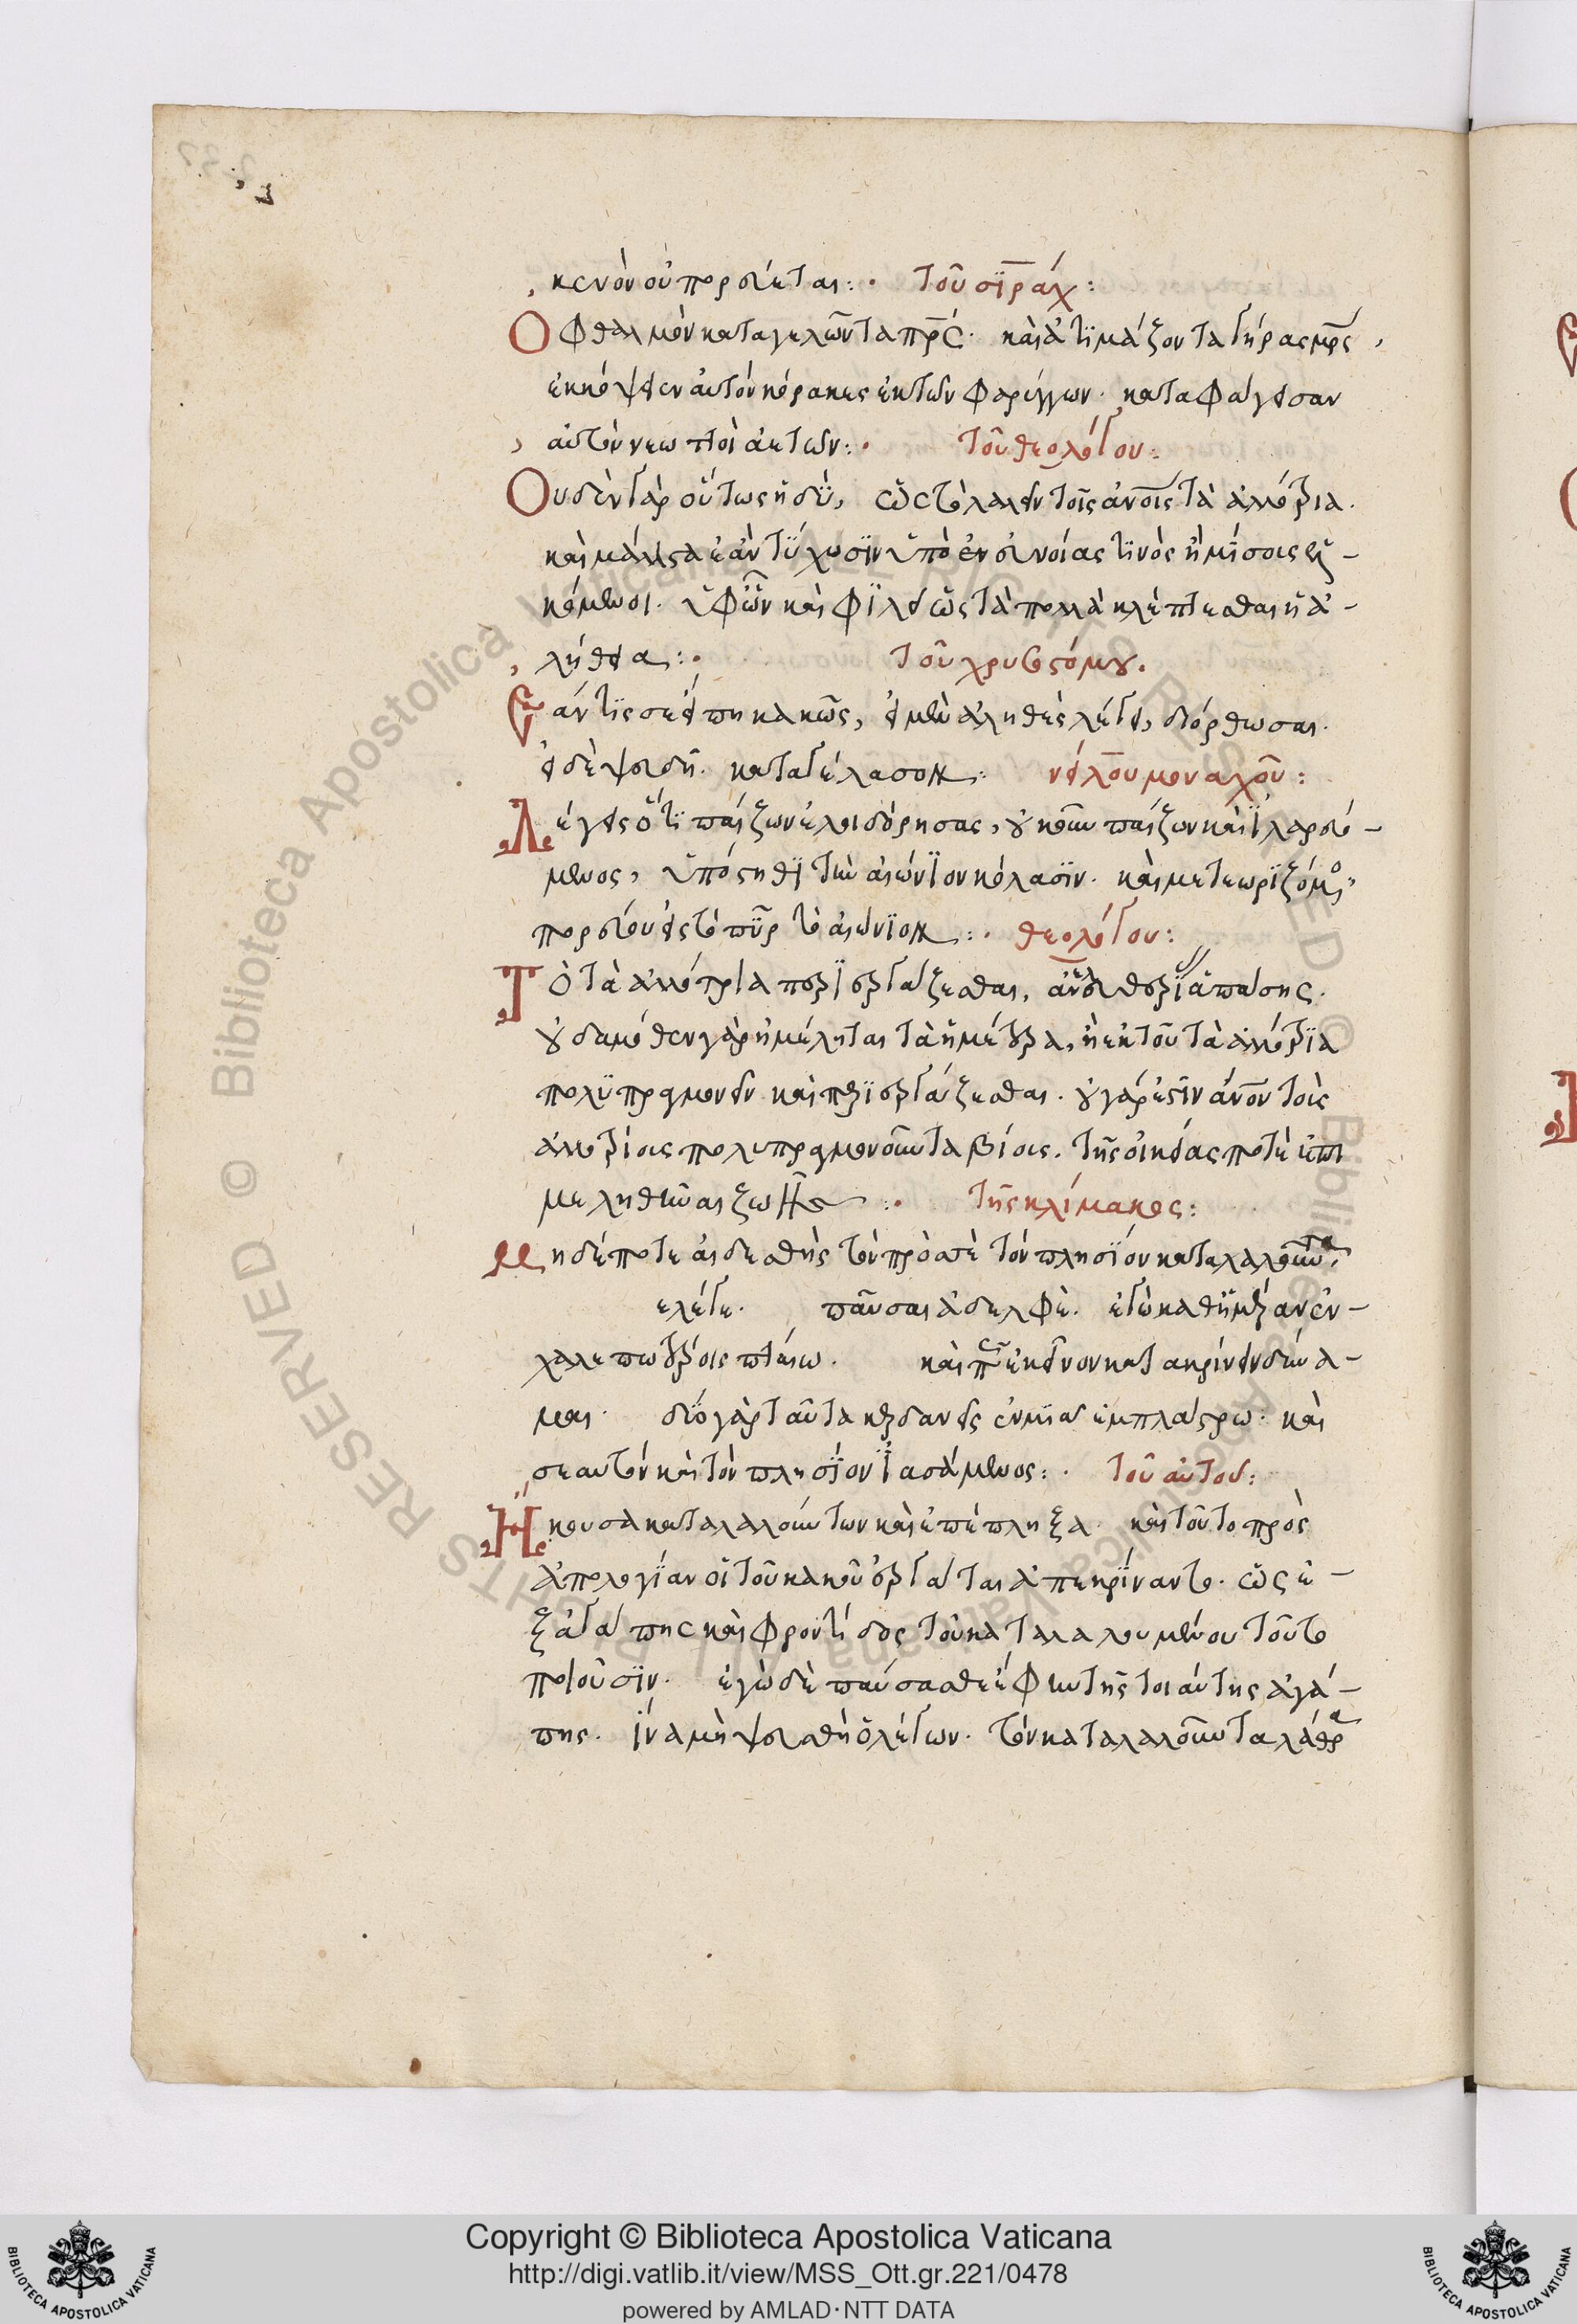 κενὸν οὐ πορεύεται:· τοῦ σϊράχ:
Οφθαλμὸν καταγελῶντα πρς· καὶ ἀτϊμάζοντα γήρας μρς,
ἐκκόψειεν αὐτὸν κόρακες ἐκ τῶν φαράγγων· καταφάγεισαν
αὐτὸν νεωττοὶ ἀετῶν:· τοῦ θεολόγου:
Ουδὲν γὰρ οὕτως ἡδὺ, ὡς τὸ λαλεῖν τοῖς ἀνοις τὰ ἀλλότρια·
καὶ μάλιστα ἐὰν τύχωσϊν ὑπὸ εὐνοίας τϊνὸς ἢ μίσους ἑλ-
κόμενοι· ὑφ' ὧν καὶ φϊλεῖ ὡς τὰ πολλὰ κλέπτεσθαι ἡ ἀ-
λήθεια:· τοῦ χρυσοστόμου.
Εάν τϊς σε εἴπη κακῶς, εἰ μὲν ἀληθὲς λέγει, διόρθωσαι·
εἰ δὲ ψευδῆ· καταγέλασον: νείλου μοναχοῦ:
Λέγεις ὅτϊ παίζων ἐλοιδόρησας, οὐκοῦν παίζων καὶ ϊλαρευό-
μενος, ὑπόστηθϊ τὴν αἰώνϊον κόλασϊν· καὶ μετεωρϊζόμος,
πορεύου εἰς τὸ πῦρ τὸ αἰώνϊον:· θεολόγου:
Τὸ τὰ ἀλλότρια περϊεργάζεσθαι,
οὐδαμόθεν γὰρ ἠμέληται τὰ ἡμέτερα, ἢ ἐκ τοῦ τὰ ἀλλότρϊα
πολϋπραγμονεῖν καὶ περϊεργάζεσθαι· οὐ γάρ ἐστϊν ἀνον τοῖς
ἀλλοτρίοις πολυπραγμονοῦντα βίοις, τῆς οἰκείας ποτὲ ἐπι
μεληθῆναι ζωῆς:· τῆς κλίμακος:
Μηδέποτε αἰδεσθῆς τὸν πρὸς σὲ τὸν πλησϊον καταλαλοῦντα,
ἔλεγε· παῦσαι ἀδελφὲ· ἐγὼ καθημέραν ἐν
χαλεπωτέροις πταίω· καὶ πῶς ἐκεῖνον κατακρίνειν δύνα-
μαι· δύο γὰρ ταῦτα κερδανεῖς ἐν μϊᾷ ἐμπλάστρω· καὶ
σεαυτὸν καὶ τὸν πλησϊον ϊασάμενος:· τοῦ αὐτοῦ:
Ηκουσα καταλαλούντων καὶ ἐπέπληξα· καὶ τοῦτο πρὸς
ἀπολογϊαν οἱ τοῦ κακοῦ ἐργάται ἀπεκρϊναντο· ὡς ἐ-
ξ ἀγάπης καὶ φροντίδος τοῦ καταλαλουμένου τοῦτο
ποιοῦσϊν· ἐγὼ δὲ παύσασθε ἔφην τῆς τοιαύτης ἀγά-
πης· ἵνα μὴ ψευσθῆ ὁ λέγων· τὸν καταλαλοῦντα λάθρα